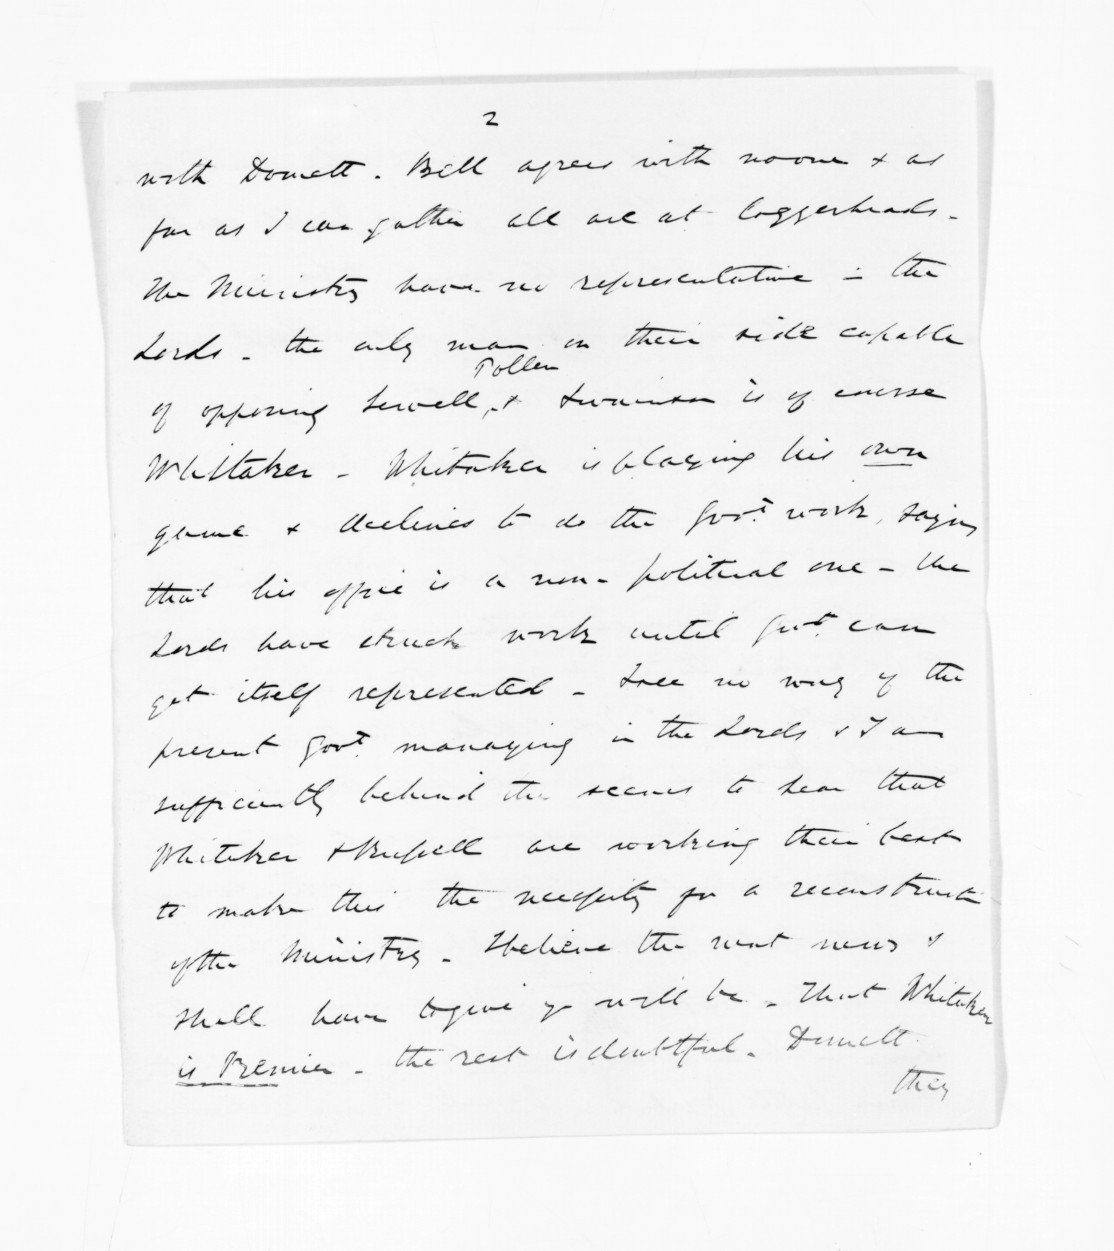 2
with Domett. Bell agrees with no one & as
far as I can gather all are at loggerheads.
The Ministry have no representative in the
Lords - the only man on their side capable
Pollen
of opposing Sewell, & Swainson is of course
Whittaker - Whitaker is playing his own
game & declines to do the Govt. work, saying
that his office is a non-political one - the
Lords have struck work until Govt. can
get itself represented - I see no way of the
present Govt. managing in the Lords & I am
sufficiently behind the scenes to hear that
Whitaker & Russell are working their best
to make this the necessity for a reconstruct
of the Ministry - I believe the next news I
shall have to give yo will be - That Whitaker
is Premier - the rest is doubtful - Domett
they